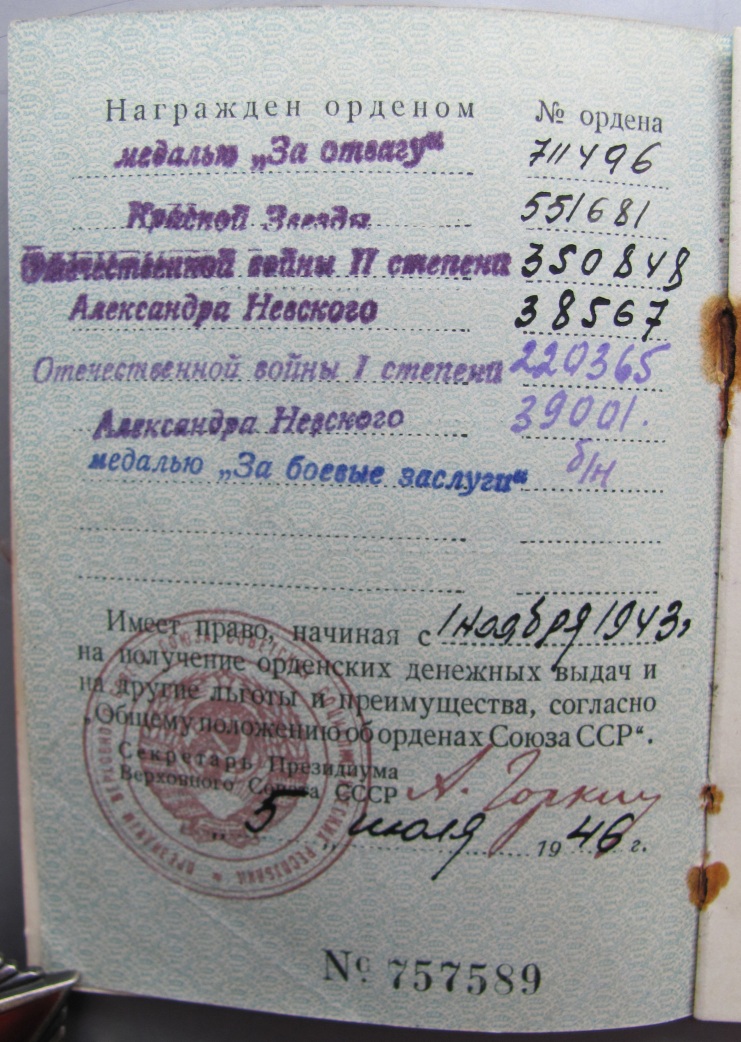 Награжден орденом № ордена
медалью „За отвагу“ 711496
Красной Звезды 551681
Отечественной войны II степени 350848
Александра Невского 38567
Отечественной войны I степени 220365
Александра Невского 39001.
медалью „За боевые заслуги“ б/н
Имеет право, начиная с 1 ноября 1943г
на получение орденских денежных выдач и
на другие льготы и преимущества, согласно
„Общему положению об орденах Союза ССР“.
Секретарь Президиума
Верховного Совета СССР А. Горкин
„5„ июля 1946 г.
№ 757589